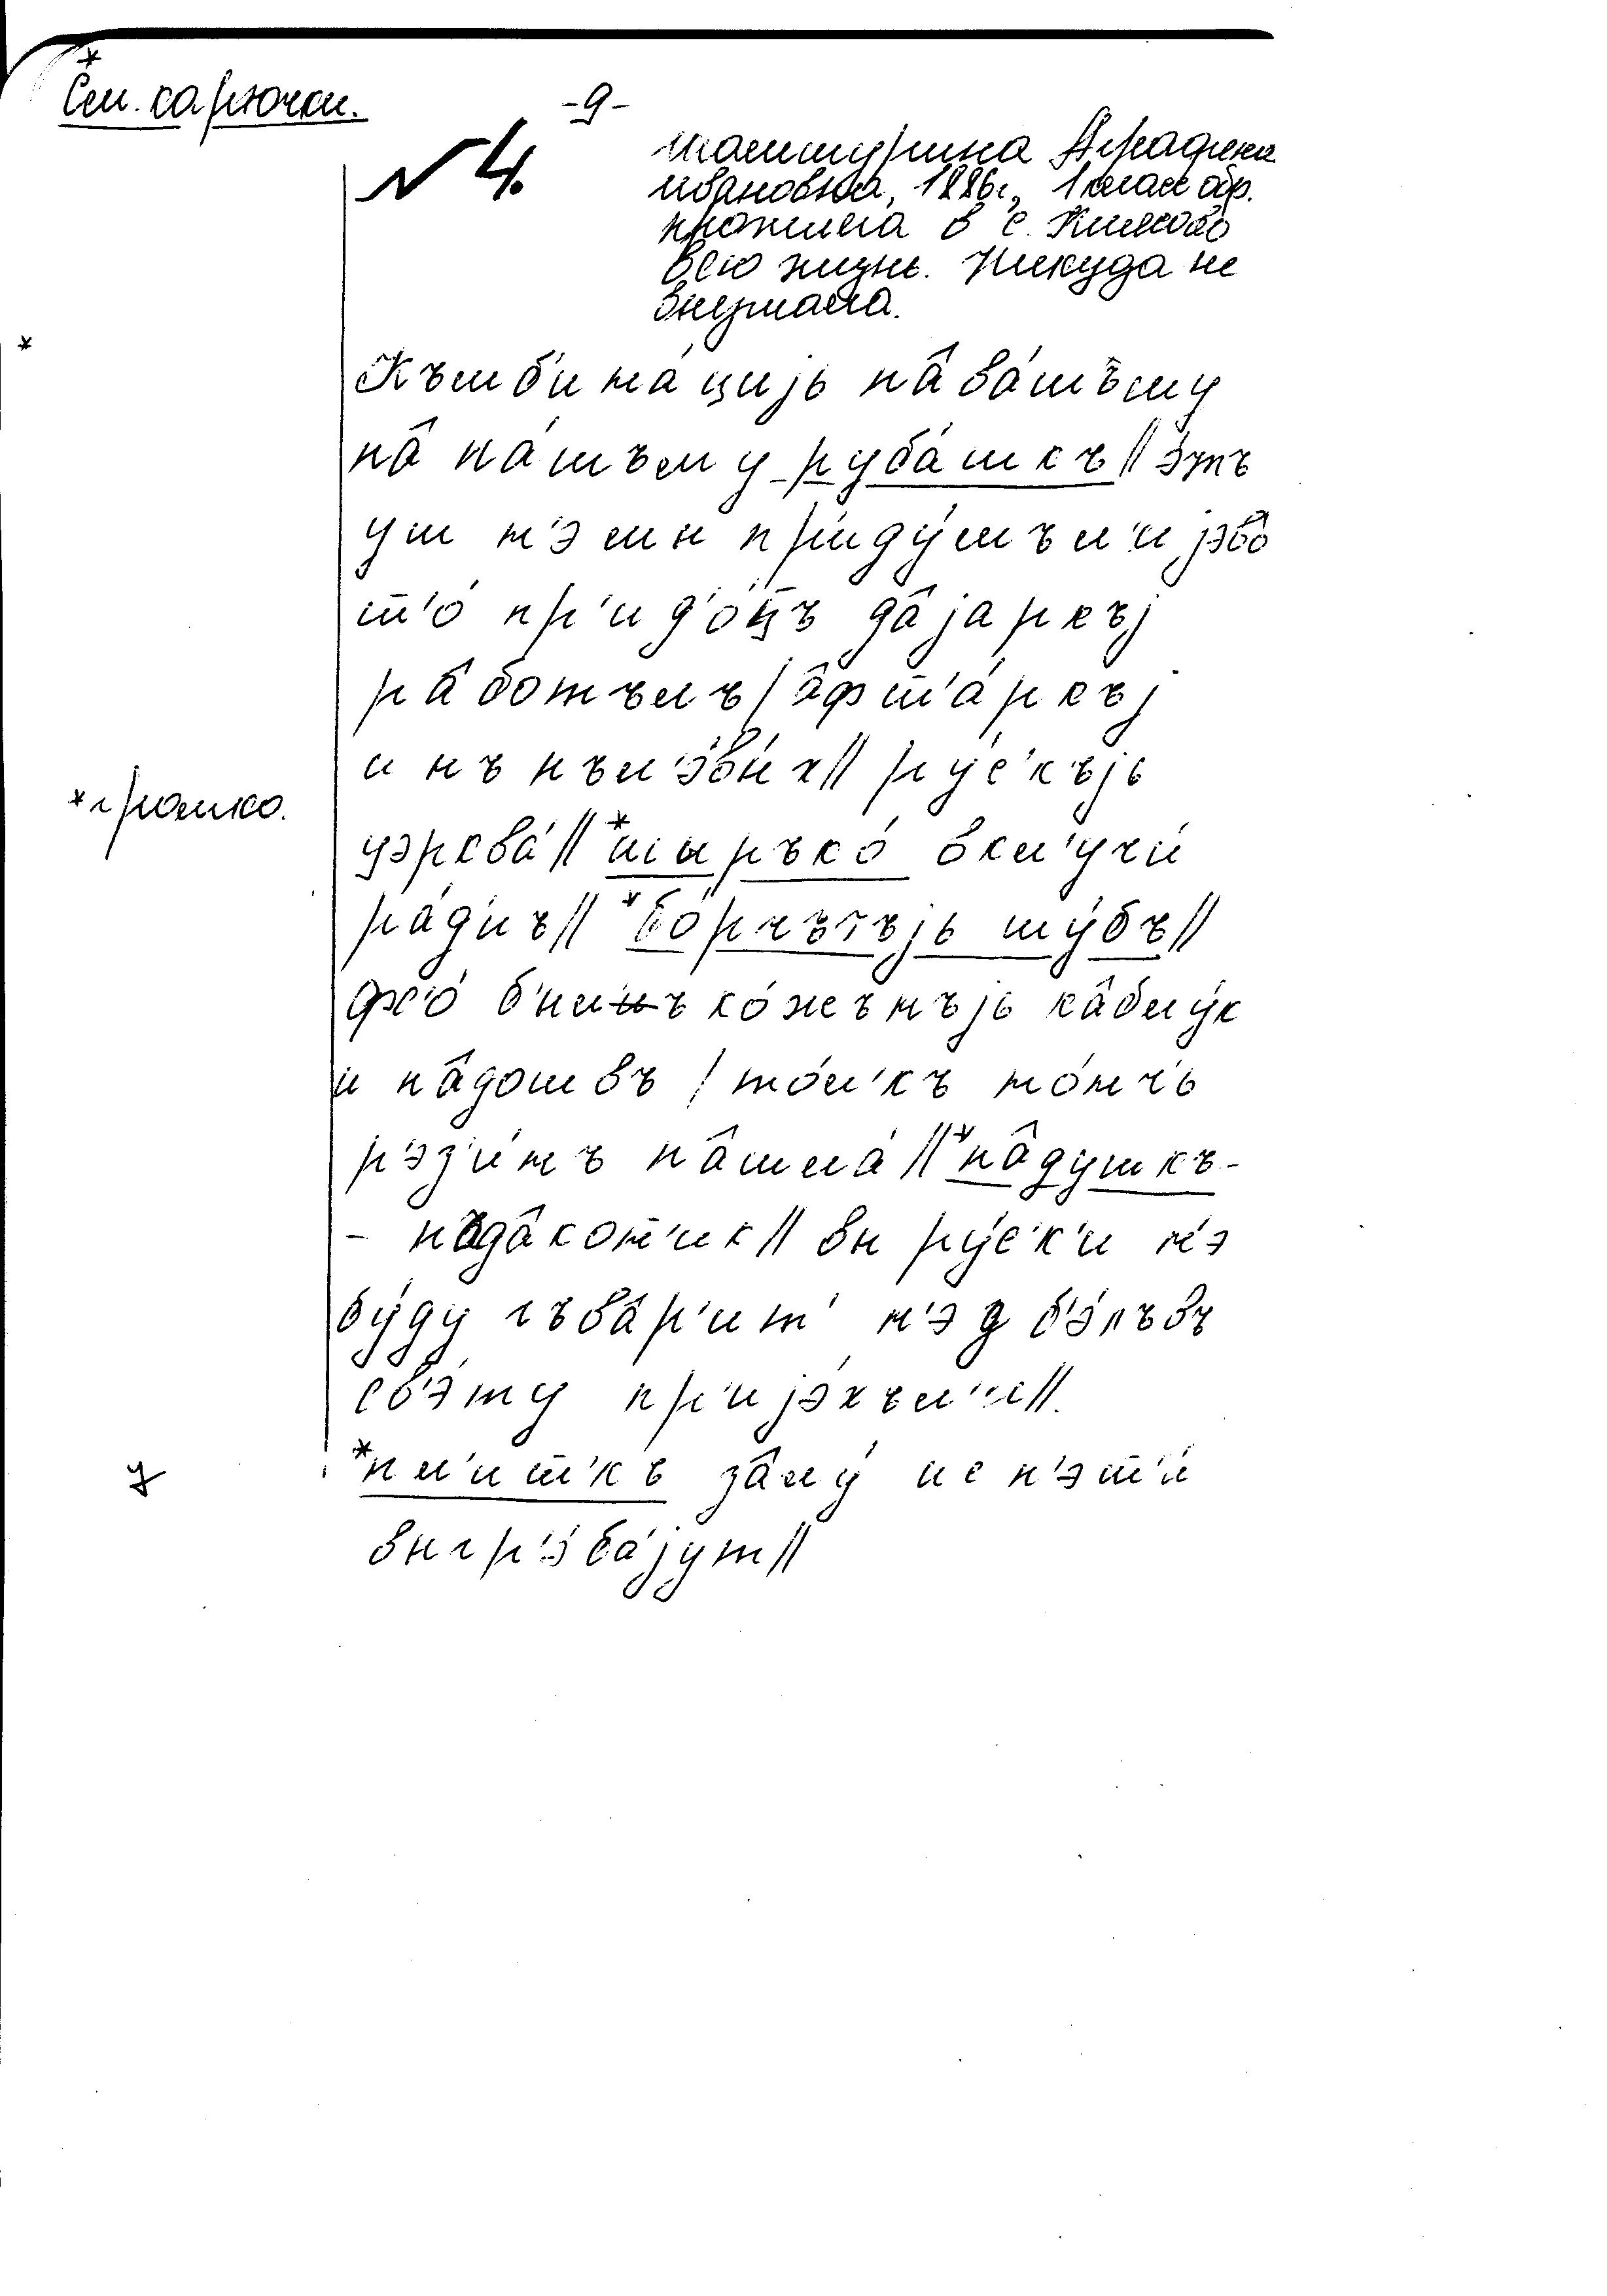 * См. карточки.
-9-
№ 4.
Шаншурина Аграфена
Ивановна, 1886г., 1 класс обр.
прожила в с. Килково
всю жизнь. Никуда не
выезжала.
*
Къмб'ина́цијь па̂ва́шъму
па̂ на́шъму руба́шкъ // э́тъ
уш н'э мы пр'иду́мъл'и јэво
т'о́ пр'ид'о́ць да̂јаркъј
ра̂ботълъ / а̂фт'а́ркъј
и нъ
ру́с'къјь
*громко.
цэрква́ // *шы́ръко́ вкл'учи́
ра́д'иъ // *бо́рчътъјь шу́бъ //
фс'о́ бы́лъ ко́жънъјь ка̂блу́к
и па̂дошвъ / то́л'къ то́нч'ь
р'эз'и́нъ па̂шла́ // *па̂душкъ -
- пъда̂кот'ик // вы ру́с'к'и н'э
бу́ду гъва̂р'ит' н'э д б'э́лъвъ
св'э́ту пр'ијэ́хъл'и //.
*пл'ит'къ за̂лу́ ис п'эт'и́
выгр'эба́јут //